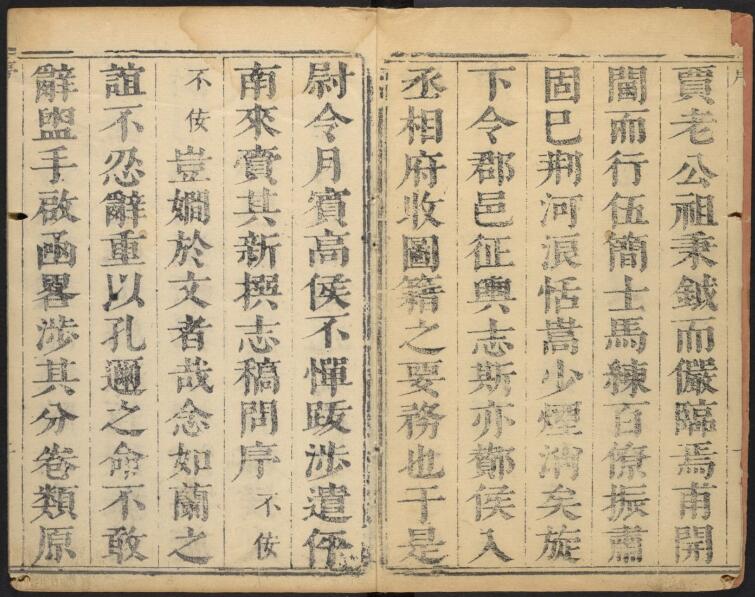 賈老公祖秉鉞而儼臨焉甫開
閫而行伍簡士馬練百僚振肅
固已荆河浪恬嵩少煙消矣旋
下令郡邑征輿志斯亦酇侯入
丞相府收圖籍之要務也于是
尉令月賓高侯不憚跋涉遣伻
南來賫其新撰志稿問序不佞
不佞豈嫺於文者哉念如蘭之
誼不忍辭重以孔邇之命不敢
辭盥手啟函畧涉其分卷類原